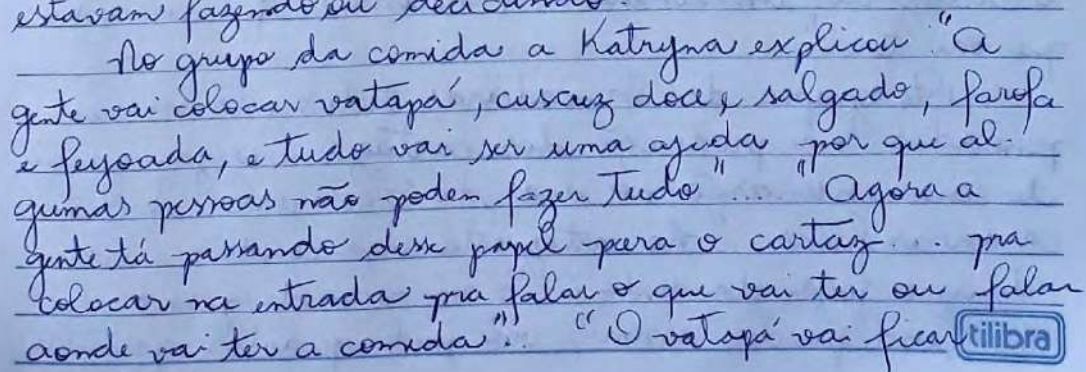 estavam fazendo ou decidindo.
No grupo da comida a Katryna explicou "A
gente vai colocar vatapá, cuscuz doce, salgado, farofa
e feijoada, e tudo vai ser uma ajuda por que al-
gumas pessoas não podem fazer tudo"... "Agora a
gente tá passando desse papel para o cartaz... pra
colocar na entrada pra falar o que vai ter ou falar
aonde vai ter a comida".. "O vatapá vai ficar
tilibra